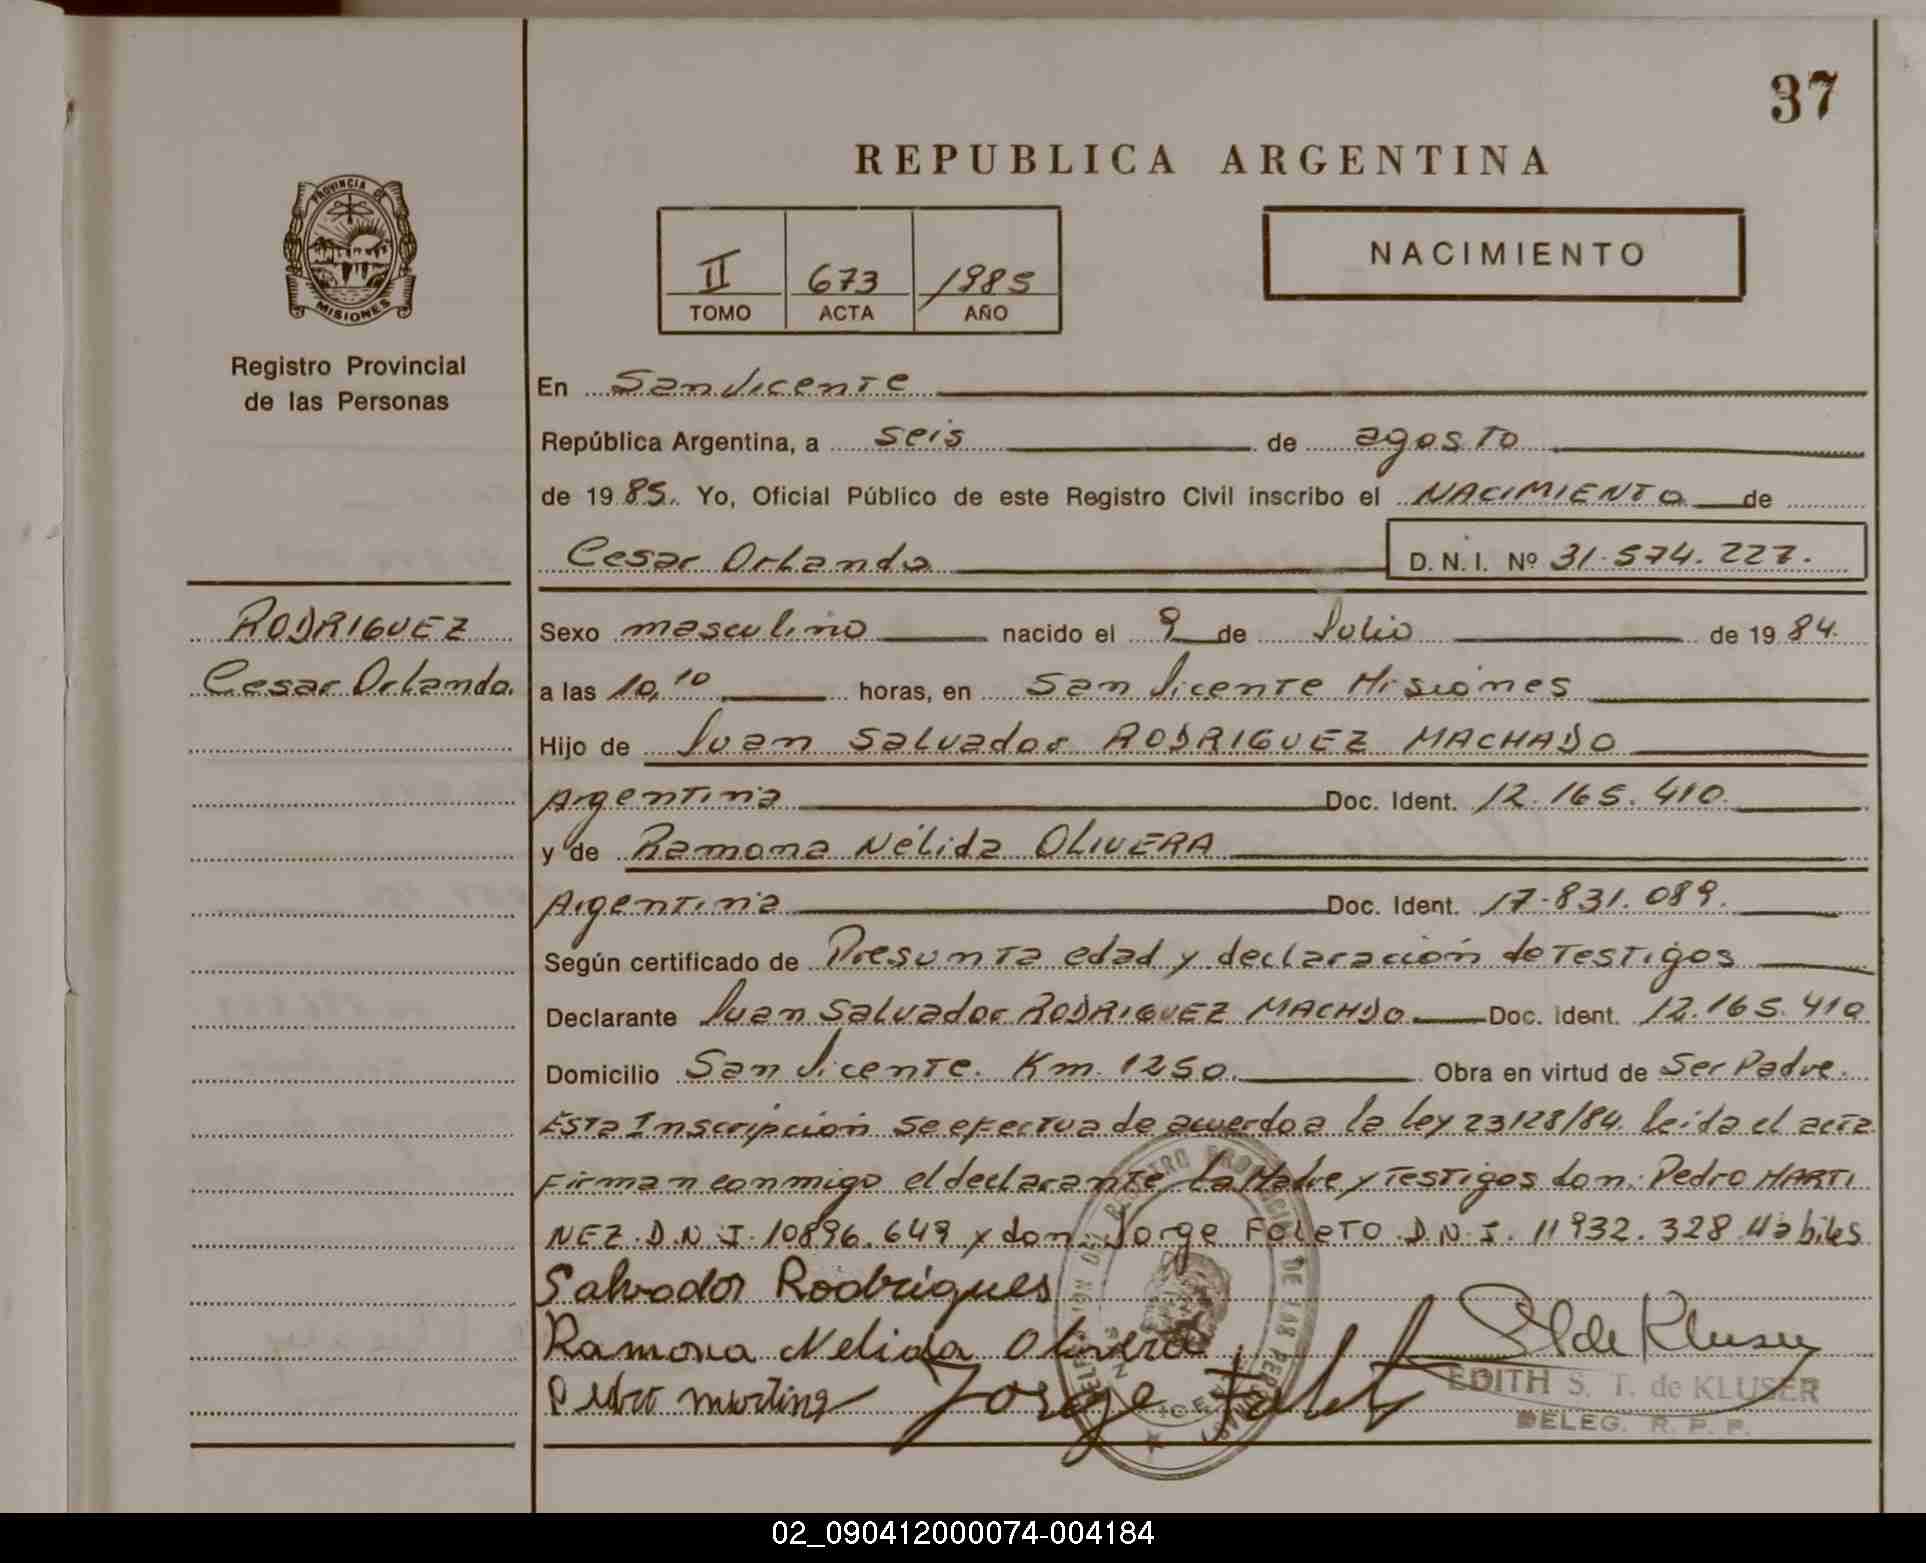 37
REPUBLICA ARGENTINA
PROVINCIA DE
MISIONES
Registro Provincial
de las Personas
II 673 1985
TOMO ACTA AÑO
NACIMIENTO
En San Vicente
República Argentina, a seis de agosto
de 1985. Yo, Oficial Público de este Registro Civil inscribo el NACIMIENTO de
Cesar Orlando D. N. I. Nº 31.574.227.
RODRIGUEZ
Cesar Orlando.
Sexo masculino nacido el 9 de Julio de 1984.
a las 10,10 horas, en San Vicente Misiones
Hijo de Juan Salvador RODRIGUEZ MACHADO
Argentina Doc. Ident. 12.165.410.
y de Ramona Nélida OLIVERA
Argentina Doc. Ident. 17.831.089.
Según certificado de Presunta edad y declaración de Testigos
Declarante Juan Salvador RODRIGUEZ MACHDO Doc. Ident. 12.165.410
Domicilio San Vicente. Km. 1250. Obra en virtud de Ser Padre.
Esta Inscripción se efectua de acuerdo a la ley 23128/84. leida el acta
Firman conmigo el declarante, La Madre y Testigos don: Pedro MARTI
NEZ. D.N.I. 10896.649 y don: Jorge FOLETO D.N.I. 11932.328 Habiles
Salvador Rodrigues
Ramona Nelida Olivera
Pedro martinez Jorge
de Kluser
EDITH S. T. de KLUSER
DELEG. R. P. P.
02_090412000074-004184